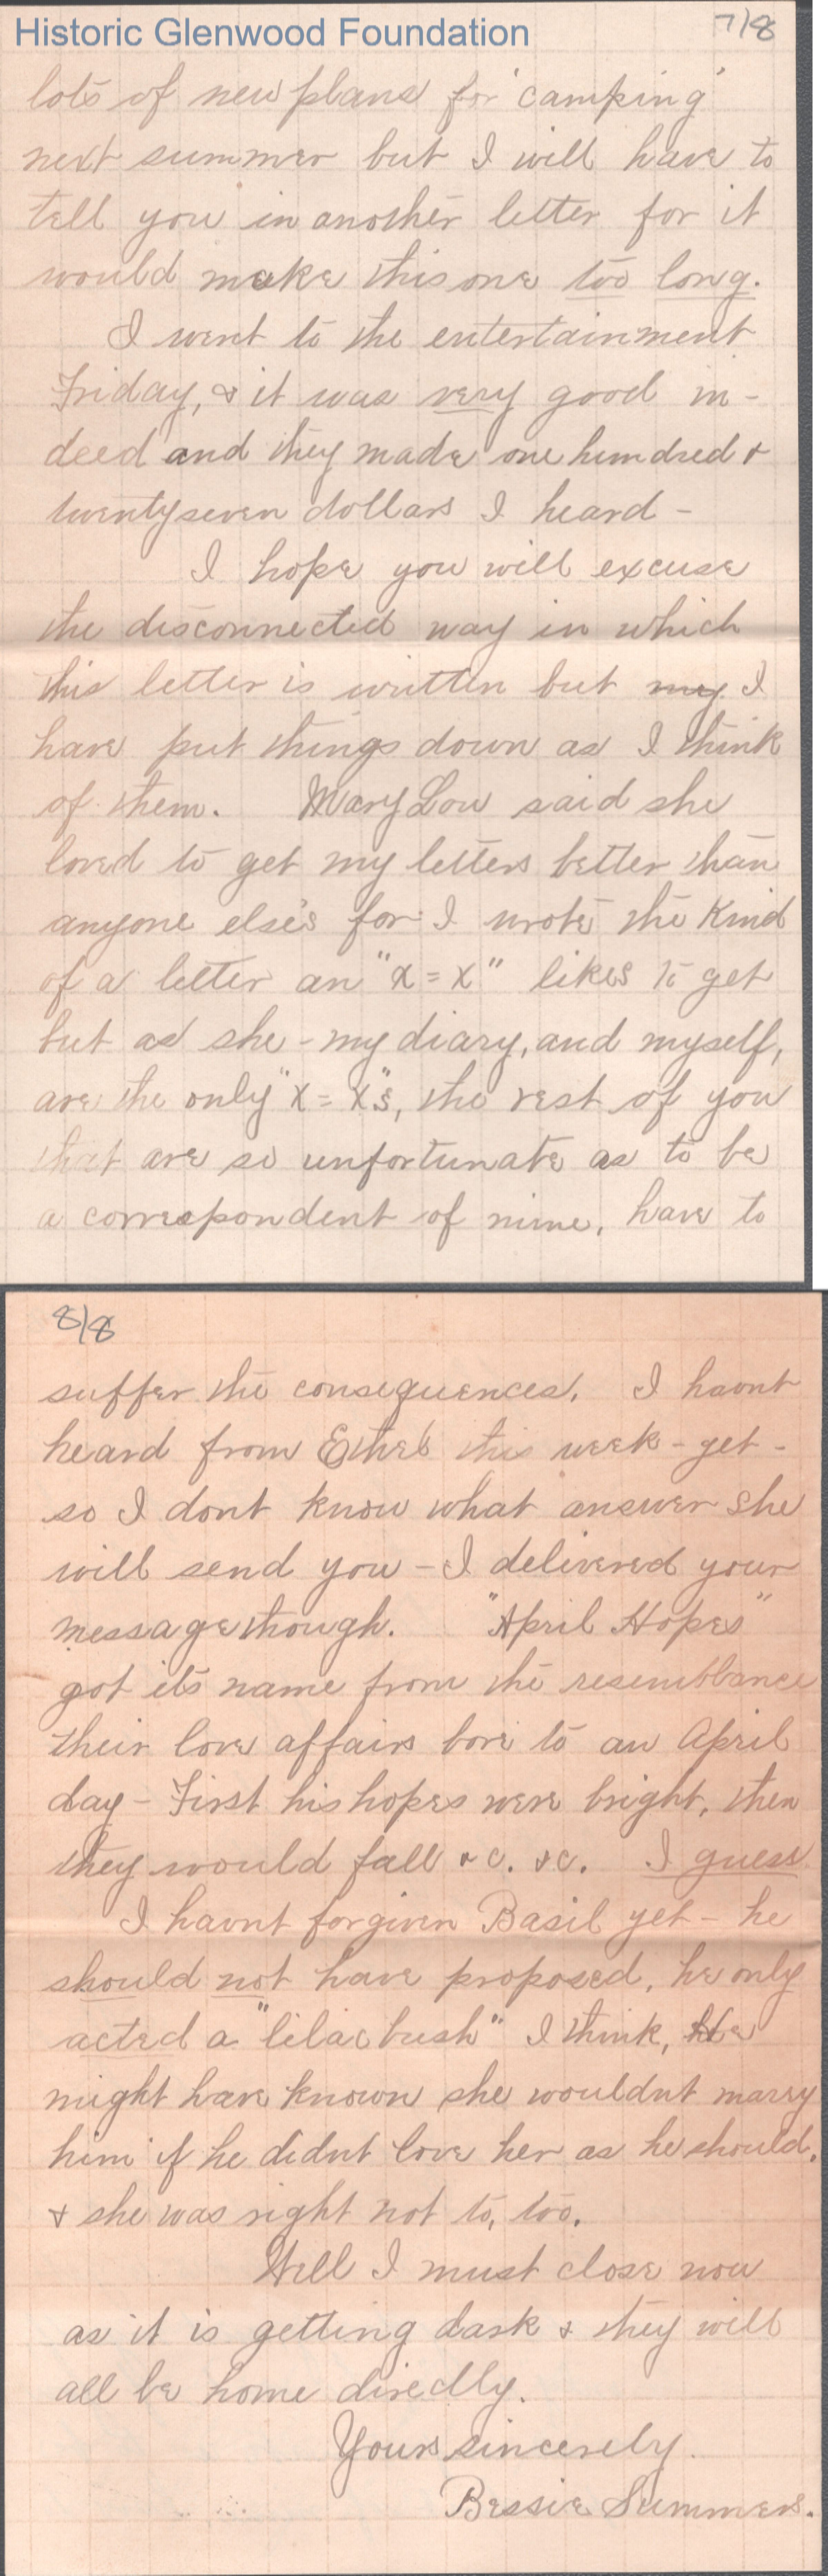 Historic Glenwood Foundation
7/8
lots of new plans for 'camping'
next summer but I will have to
tell you in another letter for it
would make this one too long.
I went to the entertainment
Friday, & it was very good in-
deed and they made one hundred &
twentyseven dollars I heard -
I hope you will excuse
the disconnected way in which
this letter is written but my I
have put things down as I think
of them. Mary Lou said she
loved to get my letters better than
anyone else's for I wrote the kind
of a letter an "x = x" likes to get
but as she - my diary, and myself,
are the only "x = x"s, the rest of you
that are so unfortunate as to be
a correspondent of mine, have to
8/8
suffer the consequences. I havnt
heard from Ethel this week - yet -
so I dont know what answer she
will send you - I delivered your
message though. "April Hopes"
got its name from the resemblance
their love affairs bore to an April
day - First his hopes were bright, then
they would fall &c. &c. I guess
I havnt forgiven Basil yet - he
should not have proposed, he only
acted a "lilac bush" I think, He
might have known she wouldnt marry
him if he didnt love her as he should.
& she was right not to, too.
Well I must close now
as it is getting dark & they will
all be home directly.
Yours sincerely.
Bessie Summers.